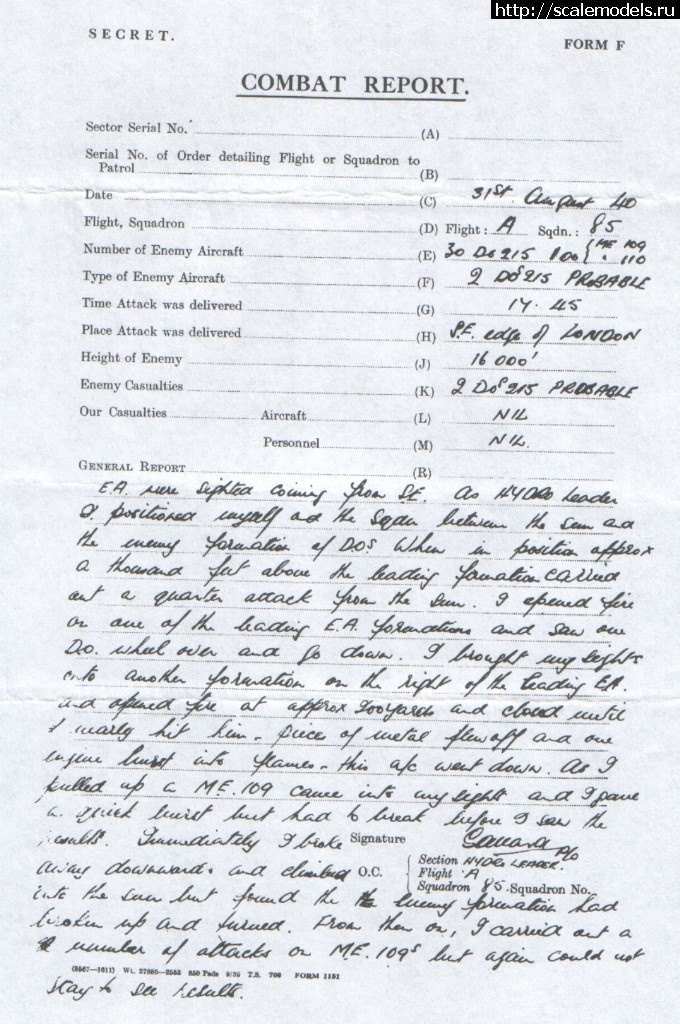 http://scalemodels.ru
SECRET.
FORM F
COMBAT REPORT.
Sector Serial No. (A)
Serial No. of Order detailing Flight or Squadron to
Patrol (B)
Date (C) 31st. August 40
Flight, Squadron (D) Flight: A Sqdn.: 85
Number of Enemy Aircraft (E) 30 Do 215 100 { ME 109 " 110
Type of Enemy Aircraft (F) 2 Dos 215 PROBABLE
Time Attack was delivered (G) 17.45
Place Attack was delivered (H) S.E. edge of LONDON
Height of Enemy (J) 16000'
Enemy Casualties (K) 2 Dos 215 PROBABLE
Our Casualties Aircraft (L) NIL
Personnel (M) NIL.
GENERAL REPORT (R)
E.A. were sighted coming from S.E. As HYDRO Leader
I positioned myself and the Sqdn between the sun and
the enemy formation of DOS when in position approx
a thousand feet above the leading formation carried
out a quarter attack from the sun. I opened fire
on one of the leading E.A. formations and saw one
D.O. wheel over and go down. I brought my sights
into another formation on the right of the leading E.A.
and opened fire at approx 200yards and closed until
I nearly hit him - piece of metal flew off and one
engine burst into flames - this a/c went down. As I
pulled up a M.E. 109 came into my sight and I gave
a quick burst but had to break before I saw the
results. Immediately I broke Signature P/O
away downwards and climbed O.C. Section HYDRO LEADER.
Flight A
Squadron 85. Squadron No.
into the sun but found the enemy formation had
broken up and turned. From then on, I carried out a
number of attacks on M.E. 109s but again could not
stay to see results.
(3567—1611) Wt. 27885—2558 850 Pads 9/39 T.S. 700 FORM 1151